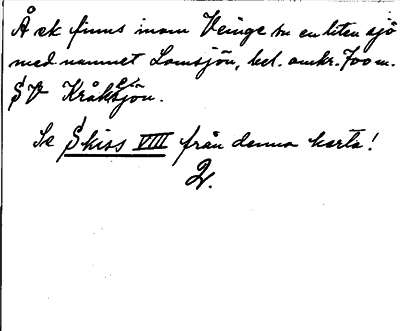 Å ek finns inom Veinge sn en liten sjö
med namnet Lomsjön, bel. omkr. 700 m.
SV Kråksjön.
Se Skiss VIII från denna karta!
2.